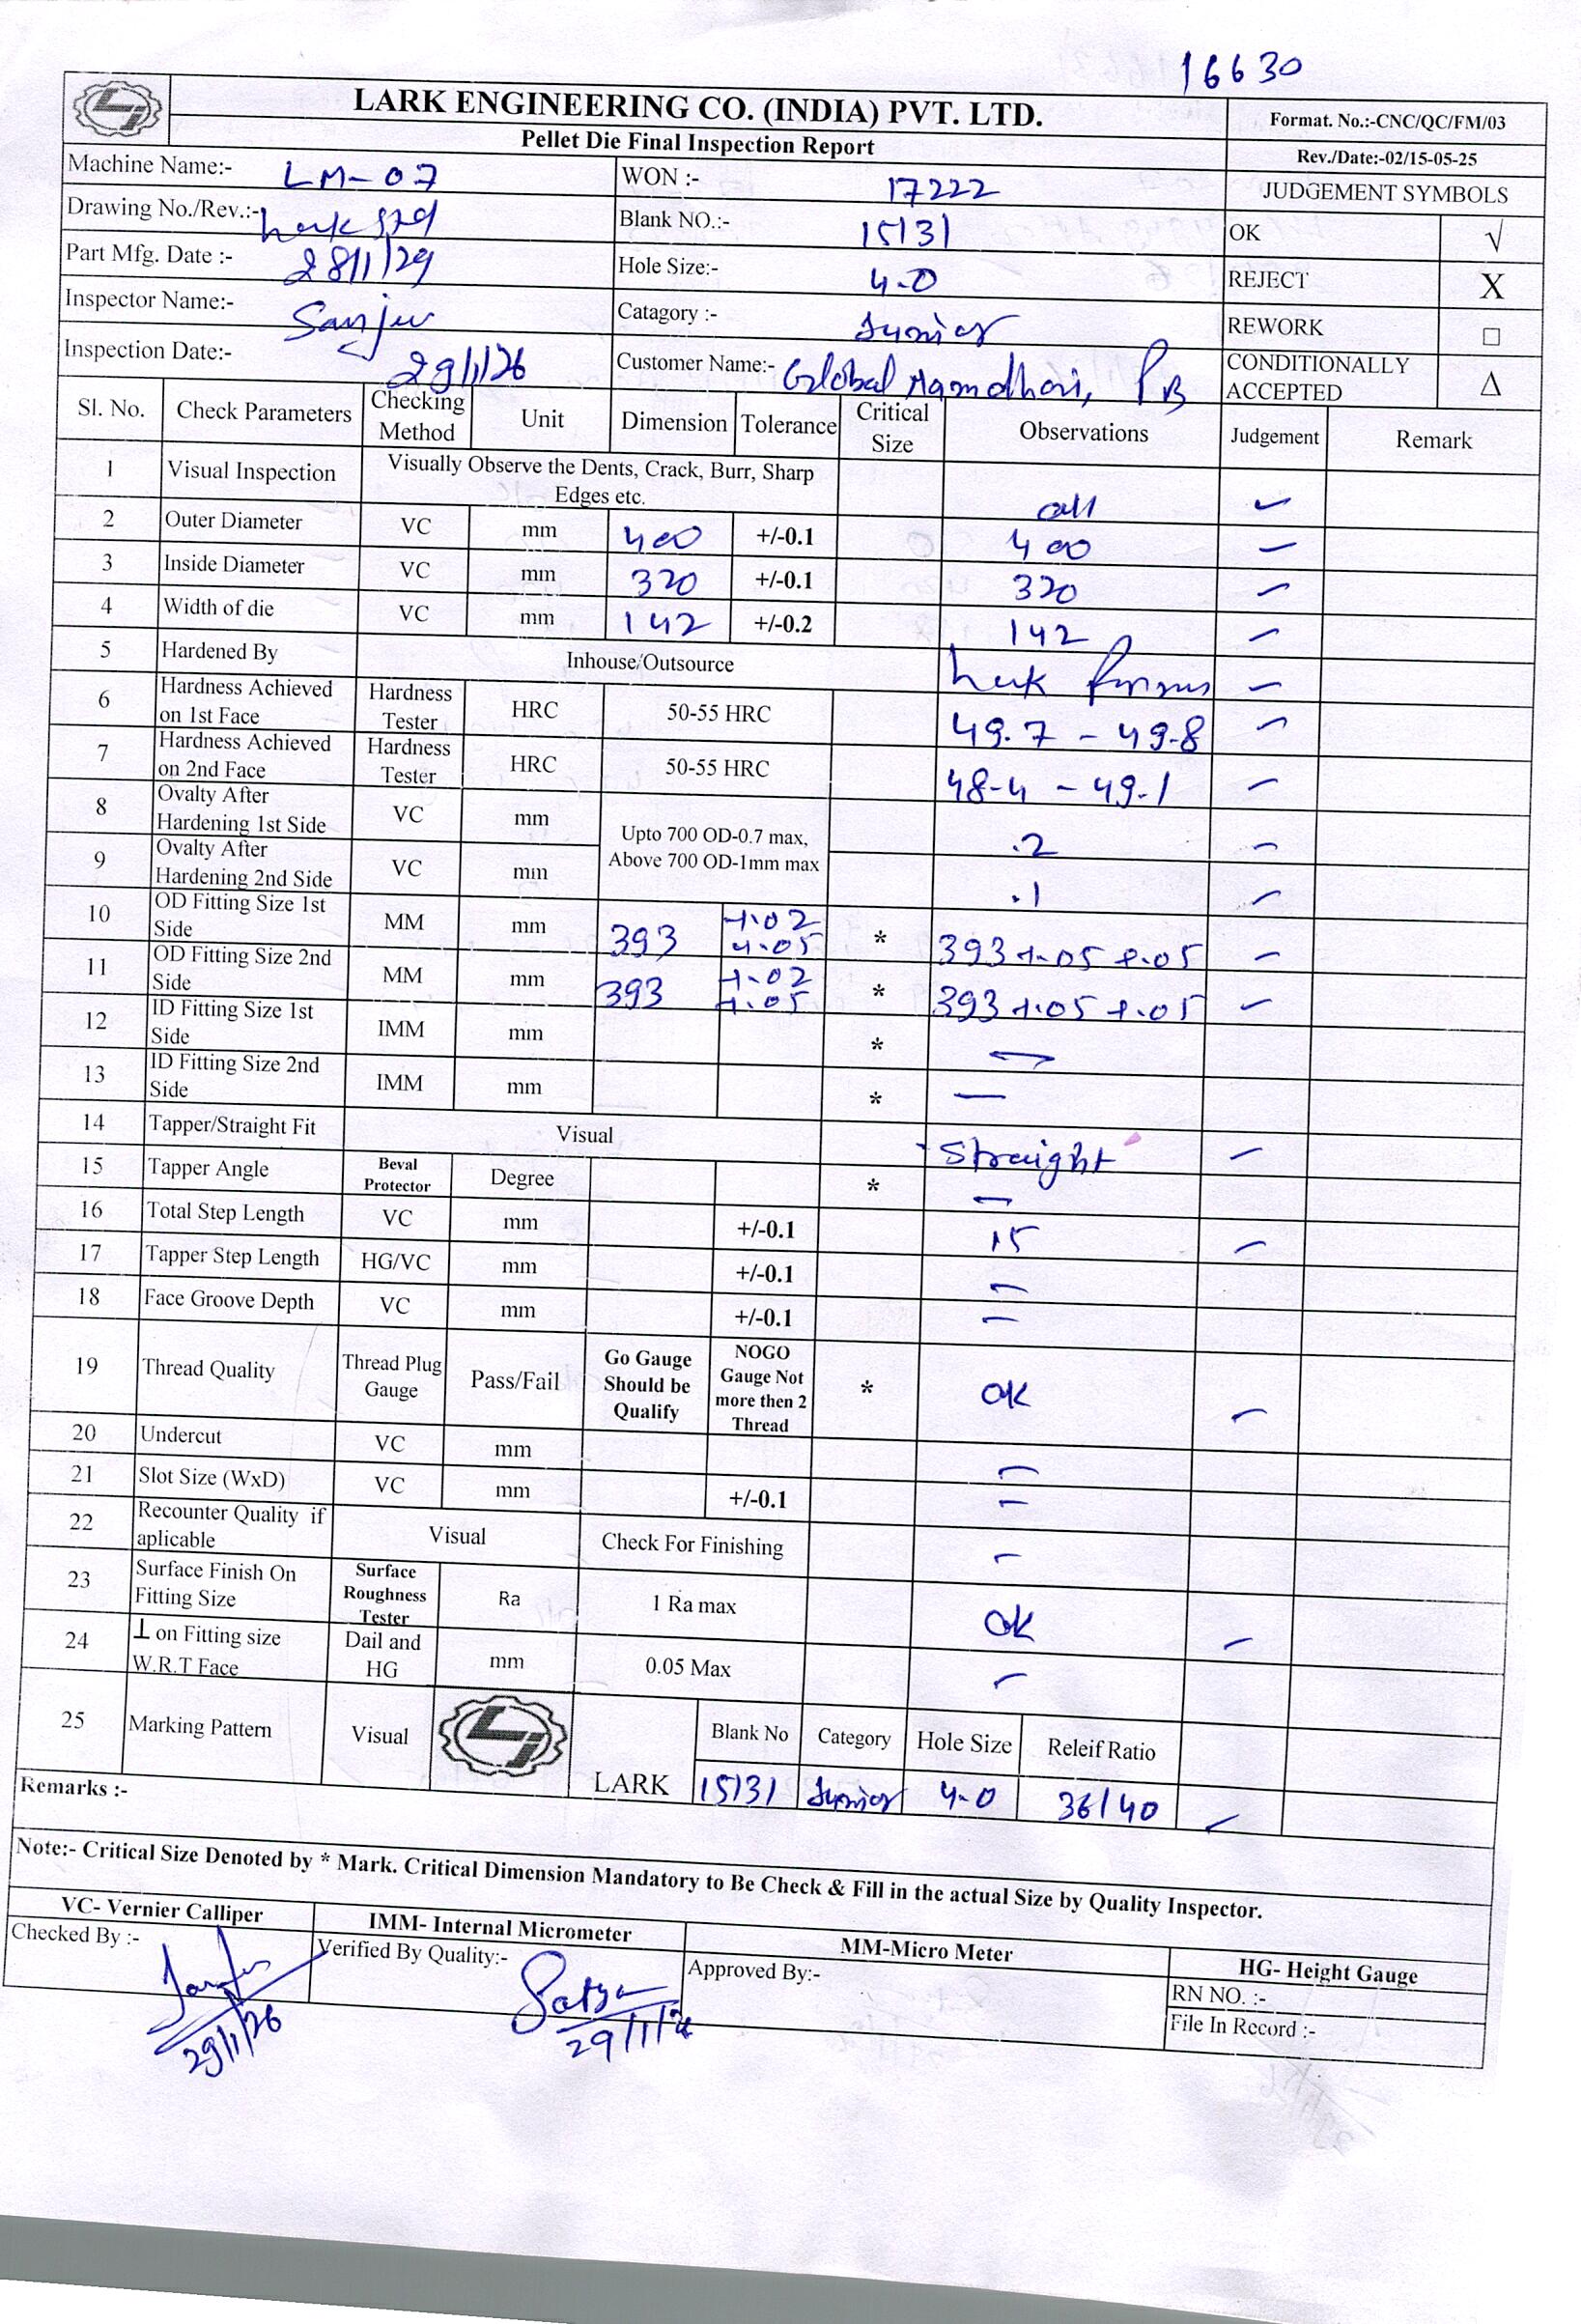 16630
LARK ENGINEERING CO. (INDIA) PVT. LTD.
Pellet Die Final Inspection Report
Format. No.:-CNC/QC/FM/03
Rev./Date:-02/15-05-25
Machine Name:- LM-07 WON :- 17222 JUDGEMENT SYMBOLS
Drawing No./Rev.:- Blank NO.:- 15131 OK √
Part Mfg. Date :- 28/1/29 Hole Size:- 4.0 REJECT X
Inspector Name:- Sanju Catagory :- Junior REWORK □
Inspection Date:- 29/1/26 Customer Name:- Global CONDITIONALLY ACCEPTED Δ
Sl. No. Check Parameters Checking Method Unit Dimension Tolerance Critical Size Observations Judgement Remark
1 Visual Inspection Visually Observe the Dents, Crack, Burr, Sharp Edges etc.
2 Outer Diameter VC mm 400 +/-0.1 400
3 Inside Diameter VC mm 320 +/-0.1 320
4 Width of die VC mm 142 +/-0.2 142
5 Hardened By Inhouse/Outsource
6 Hardness Achieved on 1st Face Hardness Tester HRC 50-55 HRC 49.7 - 49.8
7 Hardness Achieved on 2nd Face Hardness Tester HRC 50-55 HRC 48.4 - 49.1
8 Ovalty After Hardening 1st Side VC mm Upto 700 OD-0.7 max, Above 700 OD-1mm max .2
9 Ovalty After Hardening 2nd Side VC mm .1
10 OD Fitting Size 1st Side MM mm 393 +.02 +.05 * 393 +.05 +.05
11 OD Fitting Size 2nd Side MM mm 393 +.02 +.05 * 393 +.05 +.05
12 ID Fitting Size 1st Side IMM mm * —
13 ID Fitting Size 2nd Side IMM mm * —
14 Tapper/Straight Fit Visual Straight
15 Tapper Angle Beval Protector Degree * —
16 Total Step Length VC mm +/-0.1 15
17 Tapper Step Length HG/VC mm +/-0.1 —
18 Face Groove Depth VC mm +/-0.1 —
19 Thread Quality Thread Plug Gauge Pass/Fail Go Gauge Should be Qualify NOGO Gauge Not more then 2 Thread * OK
20 Undercut VC mm —
21 Slot Size (WxD) VC mm +/-0.1 —
22 Recounter Quality if aplicable Visual Check For Finishing —
23 Surface Finish On Fitting Size Surface Roughness Tester Ra 1 Ra max OK
24 ⊥ on Fitting size W.R.T Face Dail and HG mm 0.05 Max —
25 Marking Pattern Visual LARK Blank No Category Hole Size Releif Ratio
15131 Junior 4.0 36/40
Remarks :-
Note:- Critical Size Denoted by * Mark. Critical Dimension Mandatory to Be Check & Fill in the actual Size by Quality Inspector.
VC- Vernier Calliper IMM- Internal Micrometer MM-Micro Meter HG- Height Gauge
Checked By :- Verified By Quality:- Approved By:- RN NO. :-
File In Record :-
29/1/26 29/1/26